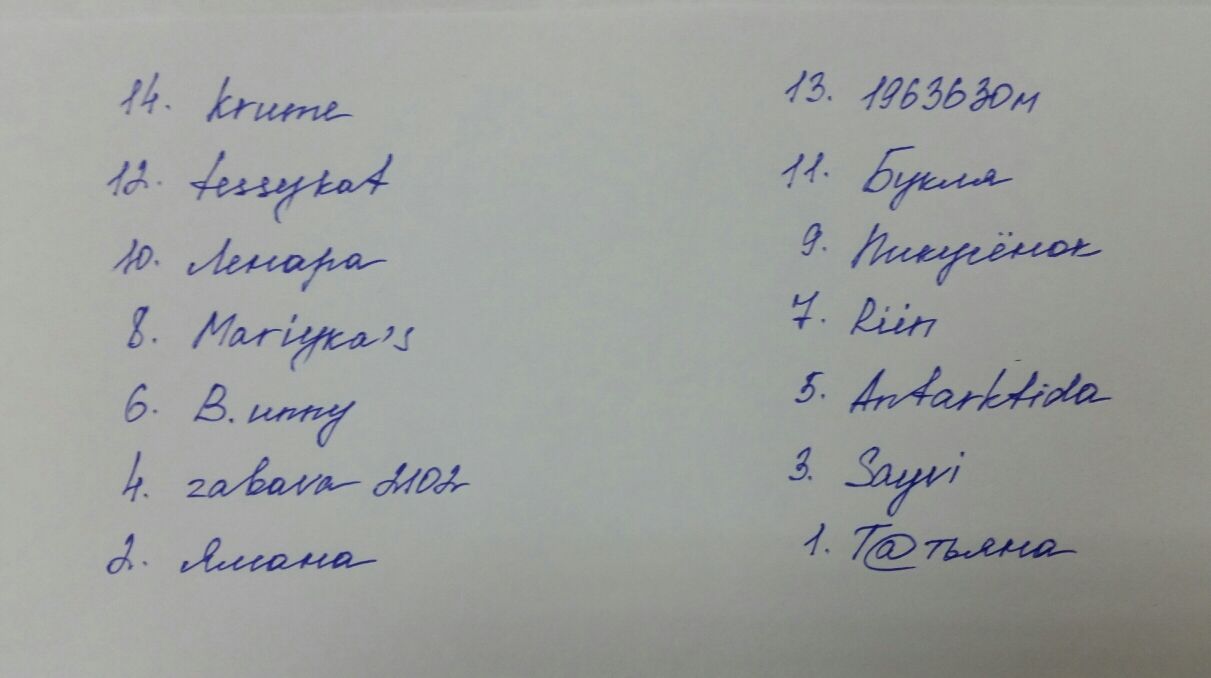 14. krume
12. tessykat
10. Ленара
8. Mariyka's
6. B.unny
4. zabava 2102
2. Ямана
13. 1963630м
11. Букля
9. Пикусёнок
7. Riin
5. Antarktida
3. Sayvi
1. Т@тьяна